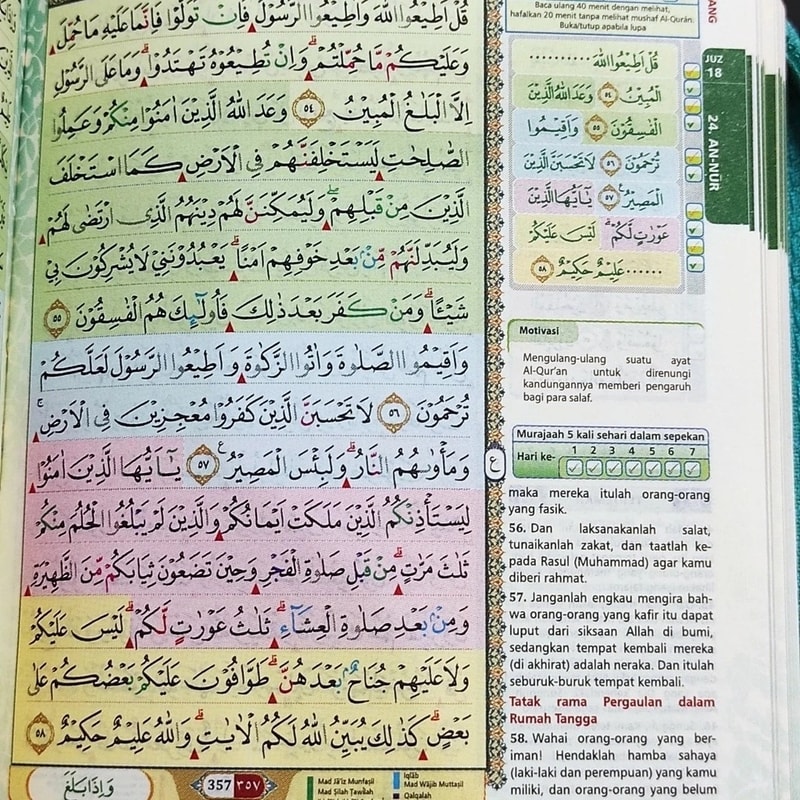 قُلْ اَطِيْعُوا اللّٰهَ وَاَطِيْعُوا الرَّسُوْلَۚ فَاِنْ تَوَلَّوْا فَاِنَّمَا عَلَيْهِ مَا حُمِّلَ
وَعَلَيْكُمْ مَّا حُمِّلْتُمْۗ وَاِنْ تُطِيْعُوْهُ تَهْتَدُوْاۗ وَمَا عَلَى الرَّسُوْلِ
اِلَّا الْبَلٰغُ الْمُبِيْنُ ٥٤ وَعَدَ اللّٰهُ الَّذِيْنَ اٰمَنُوْا مِنْكُمْ وَعَمِلُوا
الصّٰلِحٰتِ لَيَسْتَخْلِفَنَّهُمْ فِى الْاَرْضِ كَمَا اسْتَخْلَفَ
الَّذِيْنَ مِنْ قَبْلِهِمْۖ وَلَيُمَكِّنَنَّ لَهُمْ دِيْنَهُمُ الَّذِى ارْتَضٰى لَهُمْ
وَلَيُبَدِّلَنَّهُمْ مِّنْۢ بَعْدِ خَوْفِهِمْ اَمْنًاۗ يَعْبُدُوْنَنِيْ لَا يُشْرِكُوْنَ بِيْ
شَيْـًٔاۗ وَمَنْ كَفَرَ بَعْدَ ذٰلِكَ فَاُولٰۤىِٕكَ هُمُ الْفٰسِقُوْنَ ٥٥
وَاَقِيْمُوا الصَّلٰوةَ وَاٰتُوا الزَّكٰوةَ وَاَطِيْعُوا الرَّسُوْلَ لَعَلَّكُمْ
تُرْحَمُوْنَ ٥٦ لَا تَحْسَبَنَّ الَّذِيْنَ كَفَرُوْا مُعْجِزِيْنَ فِى الْاَرْضِۚ
وَمَأْوٰىهُمُ النَّارُۗ وَلَبِئْسَ الْمَصِيْرُ ࣖ ٥٧ يٰٓاَيُّهَا الَّذِيْنَ اٰمَنُوْا
لِيَسْتَأْذِنْكُمُ الَّذِيْنَ مَلَكَتْ اَيْمَانُكُمْ وَالَّذِيْنَ لَمْ يَبْلُغُوا الْحُلُمَ مِنْكُمْ
ثَلٰثَ مَرّٰتٍۗ مِنْ قَبْلِ صَلٰوةِ الْفَجْرِ وَحِيْنَ تَضَعُوْنَ ثِيَابَكُمْ مِّنَ الظَّهِيْرَةِ
وَمِنْۢ بَعْدِ صَلٰوةِ الْعِشَاۤءِۗ ثَلٰثُ عَوْرٰتٍ لَّكُمْۗ لَيْسَ عَلَيْكُمْ
وَلَا عَلَيْهِمْ جُنَاحٌۢ بَعْدَهُنَّۗ طَوَّافُوْنَ عَلَيْكُمْ بَعْضُكُمْ عَلٰى
بَعْضٍۗ كَذٰلِكَ يُبَيِّنُ اللّٰهُ لَكُمُ الْاٰيٰتِۗ وَاللّٰهُ عَلِيْمٌ حَكِيْمٌ ٥٨
وَاِذَا بَلَغَ
357 ٣٥٧
Mad Jā'iz Munfaṣil
Mad Ṣilah Ṭawīlah
Iqlāb
Mad Wājib Muttaṣil
Qalqalah
Baca ulang 40 menit dengan melihat,
hafalkan 20 menit tanpa melihat mushaf Al-Qurān.
Buka/tutup apabila lupa
قُلْ اَطِيْعُوا اللّٰهَ ..........
الْمُبِيْنُ ٥٤ وَعَدَ اللّٰهُ الَّذِيْنَ
الْفٰسِقُوْنَ ٥٥ وَاَقِيْمُوا
تُرْحَمُوْنَ ٥٦ لَا تَحْسَبَنَّ الَّذِيْنَ
الْمَصِيْرُ ࣖ ٥٧ يٰٓاَيُّهَا الَّذِيْنَ
عَوْرٰتٍ لَّكُمْۗ لَيْسَ عَلَيْكُمْ
...... عَلِيْمٌ حَكِيْمٌ ٥٨
Motivasi
Mengulang-ulang suatu ayat
Al-Qur'an untuk direnungi
kandungannya memberi pengaruh
bagi para salaf.
ع
Murajaah 5 kali sehari dalam sepekan
Hari ke- 1 2 3 4 5 6 7
maka mereka itulah orang-orang
yang fasik.
56. Dan laksanakanlah salat,
tunaikanlah zakat, dan taatlah ke-
pada Rasul (Muhammad) agar kamu
diberi rahmat.
57. Janganlah engkau mengira bah-
wa orang-orang yang kafir itu dapat
luput dari siksaan Allah di bumi,
sedangkan tempat kembali mereka
(di akhirat) adalah neraka. Dan itulah
seburuk-buruk tempat kembali.
Tatak rama Pergaulan dalam
Rumah Tangga
58. Wahai orang-orang yang ber-
iman! Hendaklah hamba sahaya
(laki-laki dan perempuan) yang kamu
miliki, dan orang-orang yang belum
JUZ
18
24. AN-NŪR